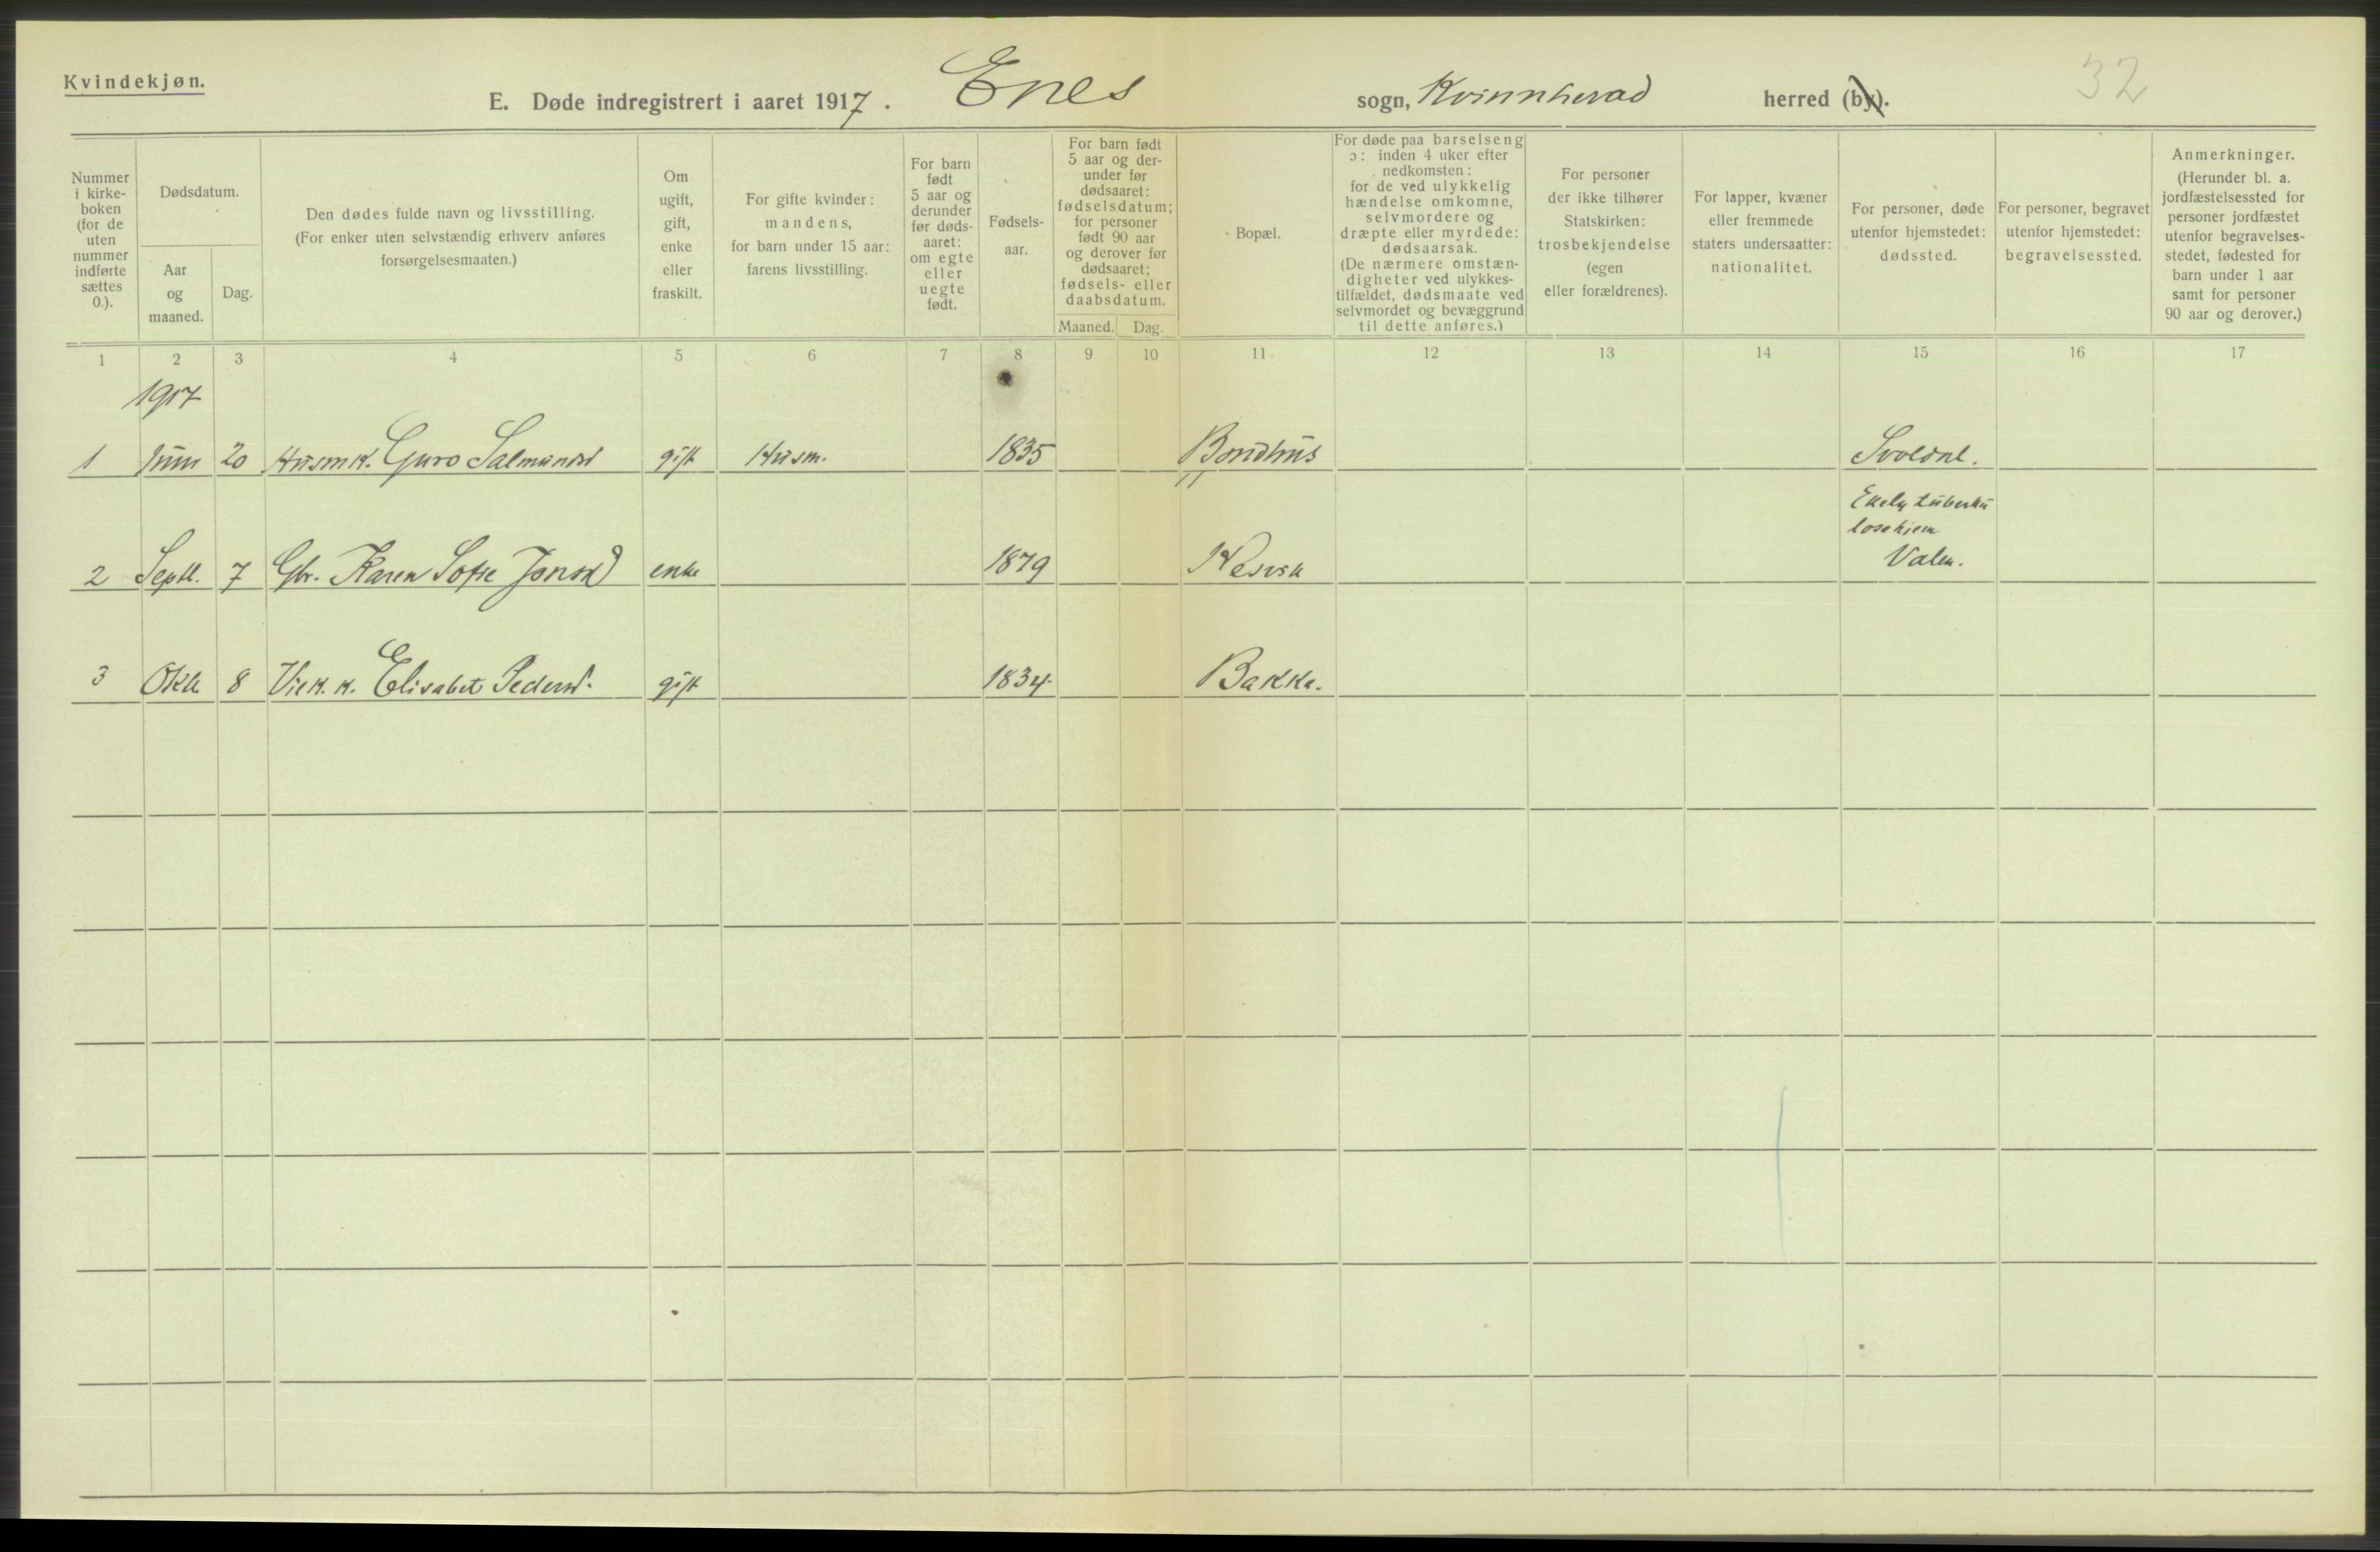 Kvindekjøn.
E. Døde indregistrert i aaret 1917. Enes sogn, Kvinnherad herred (by). 32
Nummer i kirke-boken (for de uten nummer indførte sættes 0.).
Dødsdatum.
Aar og maaned.
Dag.
Den dødes fulde navn og livsstilling.
(For enker uten selvstændig erhverv anføres
forsørgelsesmaaten.)
Om ugift, gift, enke eller fraskilt.
For gifte kvinder:
mandens,
for barn under 15 aar:
farens livsstilling.
For barn født 5 aar og derunder før døds-aaret: om egte eller uegte født.
Fødsels-aar.
For barn født 5 aar og der-under før dødsaaret: fødselsdatum; for personer født 90 aar og derover før dødsaaret; fødsels- eller daabsdatum.
Maaned. Dag.
Bopæl.
For døde paa barselseng
ɔ: inden 4 uker efter
nedkomsten:
for de ved ulykkelig
hændelse omkomne,
selvmordere og
dræpte eller myrdede:
dødsaarsak.
(De nærmere omstæn-
digheter ved ulykkes-
tilfældet, dødsmaate ved
selvmordet og bevæggrund
til dette anføres.)
For personer
der ikke tilhører
Statskirken:
trosbekjendelse
(egen
eller forældrenes).
For lapper, kvæner
eller fremmede
staters undersaatter:
nationalitet.
For personer, døde
utenfor hjemstedet:
dødssted.
For personer, begravet
utenfor hjemstedet:
begravelsessted.
Anmerkninger.
(Herunder bl. a.
jordfæstelsessted for
personer jordfæstet
utenfor begravelses-
stedet, fødested for
barn under 1 aar
samt for personer
90 aar og derover.)
1 2 3 4 5 6 7 8 9 10 11 12 13 14 15 16 17
1917
1 Juni 20 Husmk. Guro Salmundsd gift Husm. 1835 Bondhus
2 Septb. 7 Gbr. Karen Sofie Jonsd enke 1879 Nesvik tuberku
losehjem
Valen.
3 Oktb. 8 Elisabet Pedersd. gift 1834 Bakke.